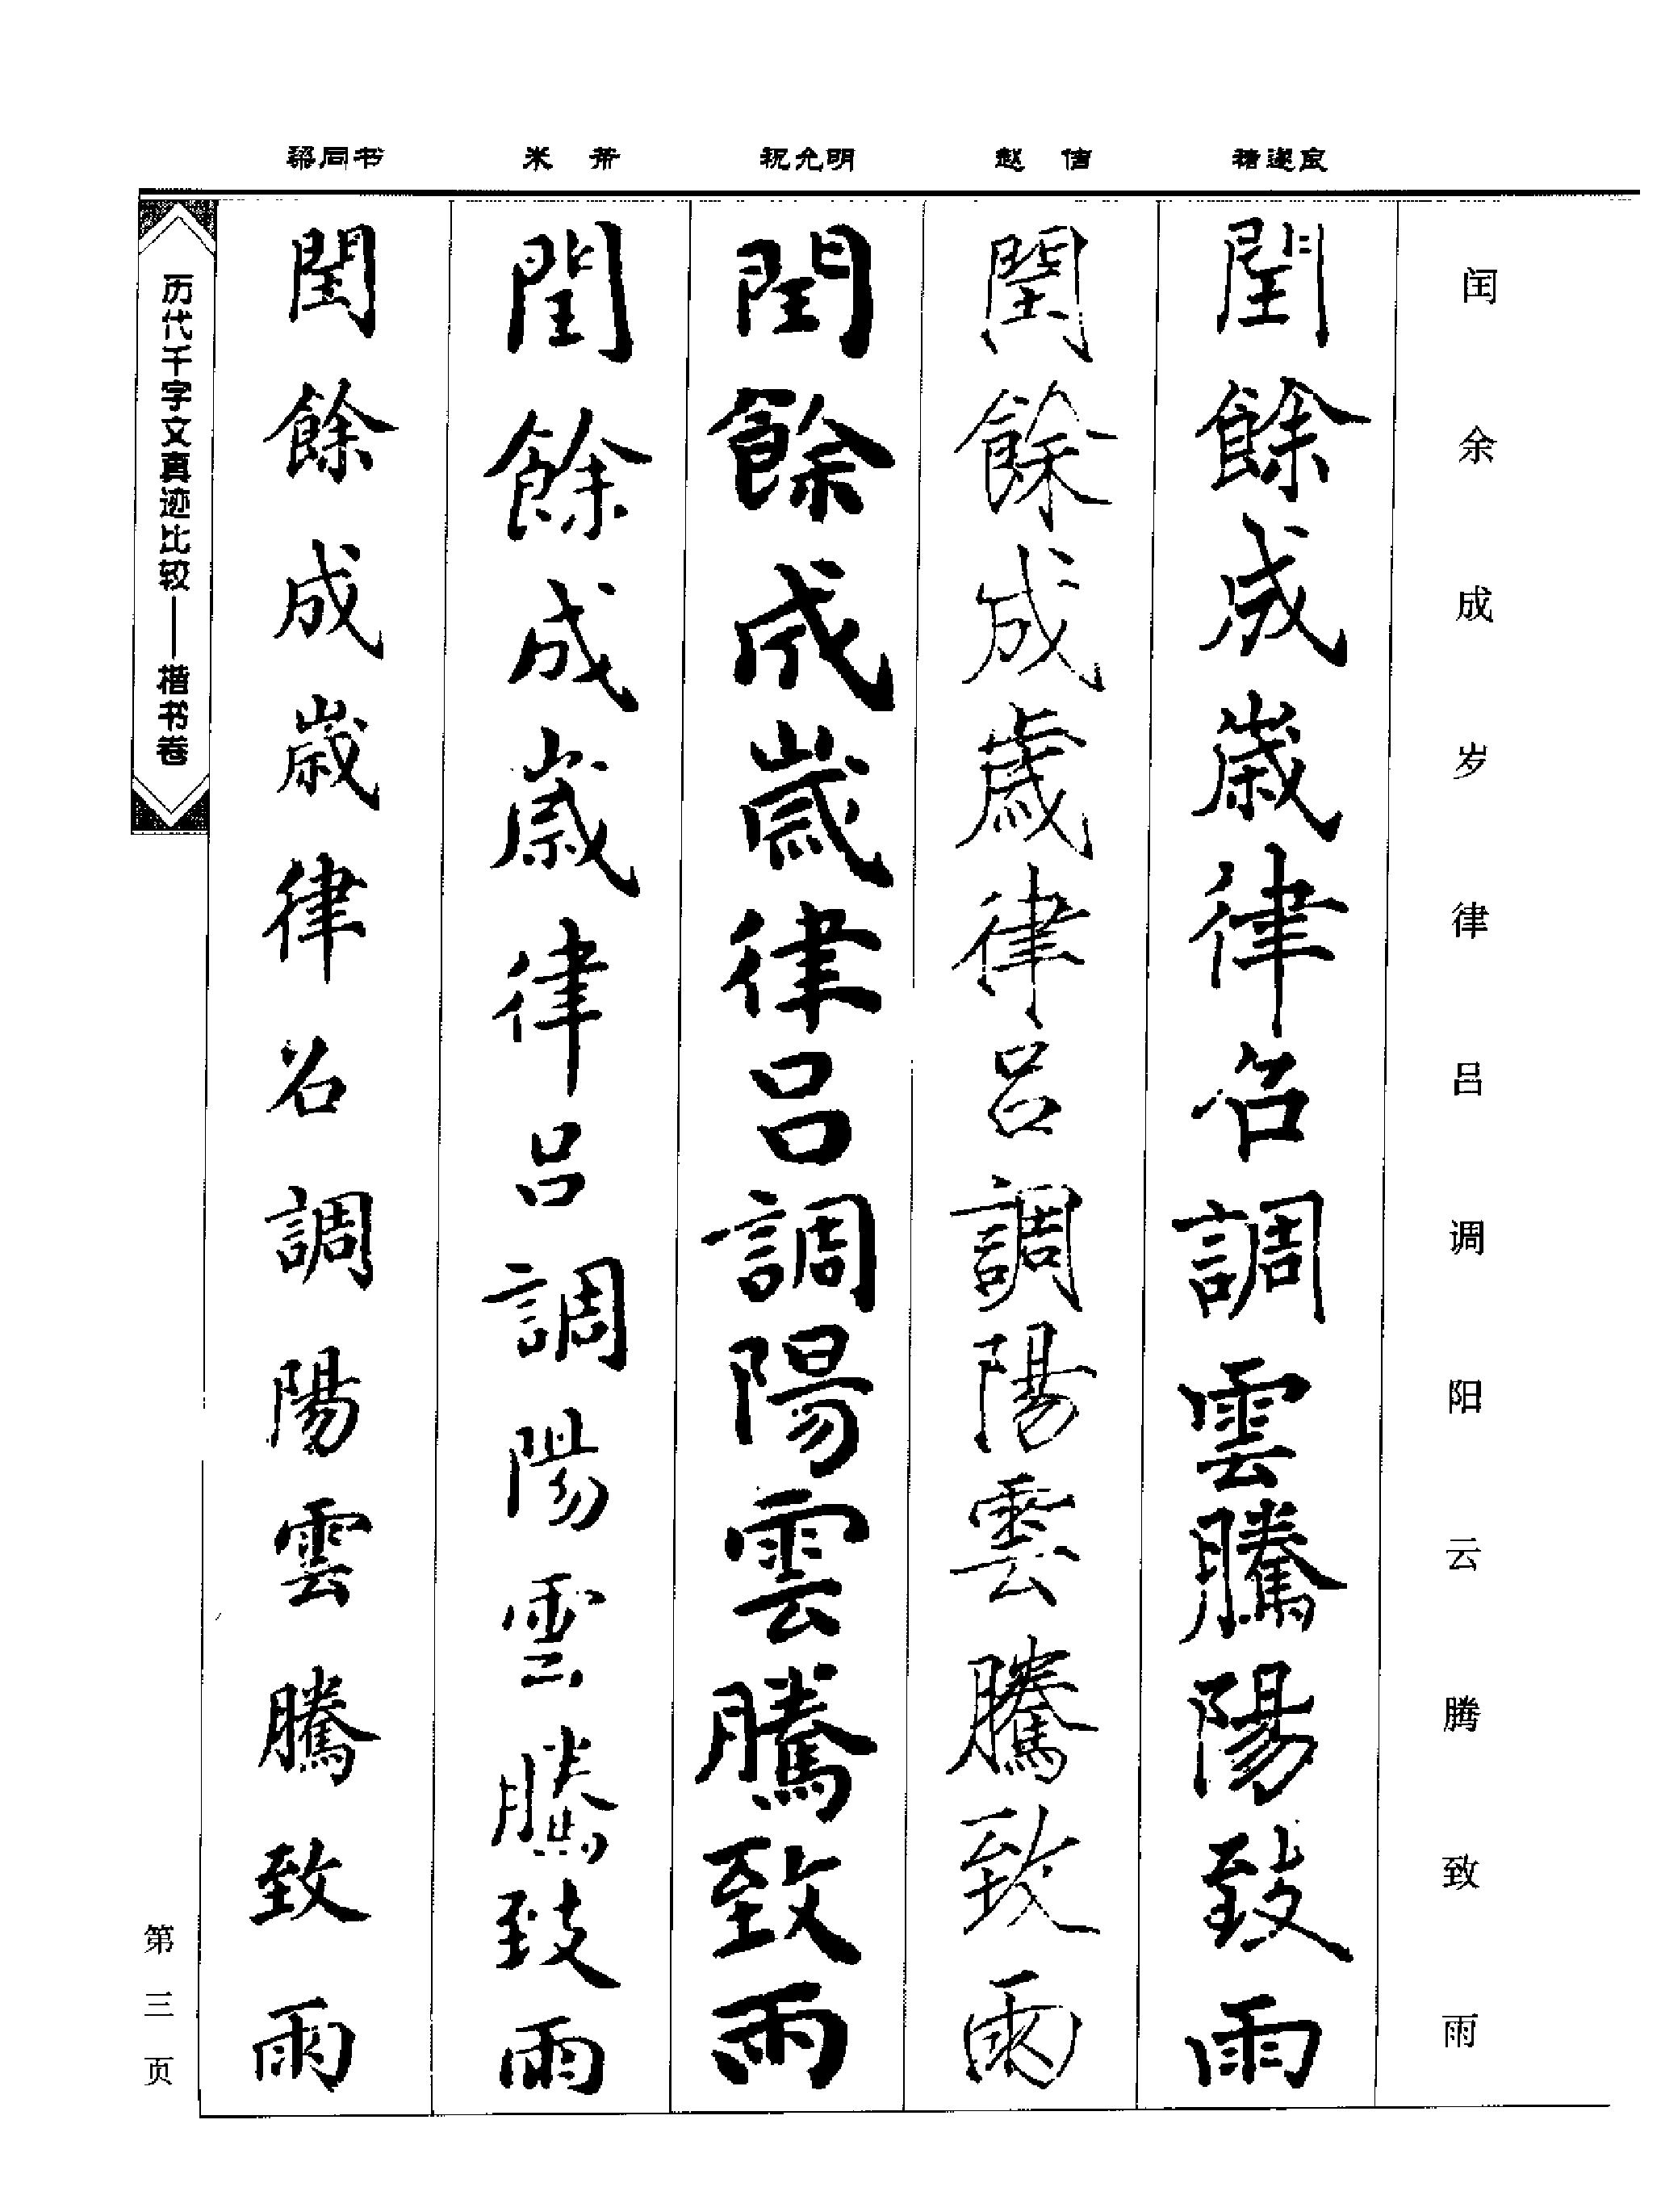 褚遂良
赵佶
祝允明
米芾
梁同书
闰余成岁律吕调阳云腾致雨
閏餘成歲律召調雲騰陽致雨
閏餘成歲律呂調陽雲騰致雨
閏餘成歲律呂調陽雲騰致雨
閏餘成歲律呂調陽雲騰致雨
閏餘成歲律召調陽雲騰致雨
历代千字文真迹比较——楷书卷
第三页